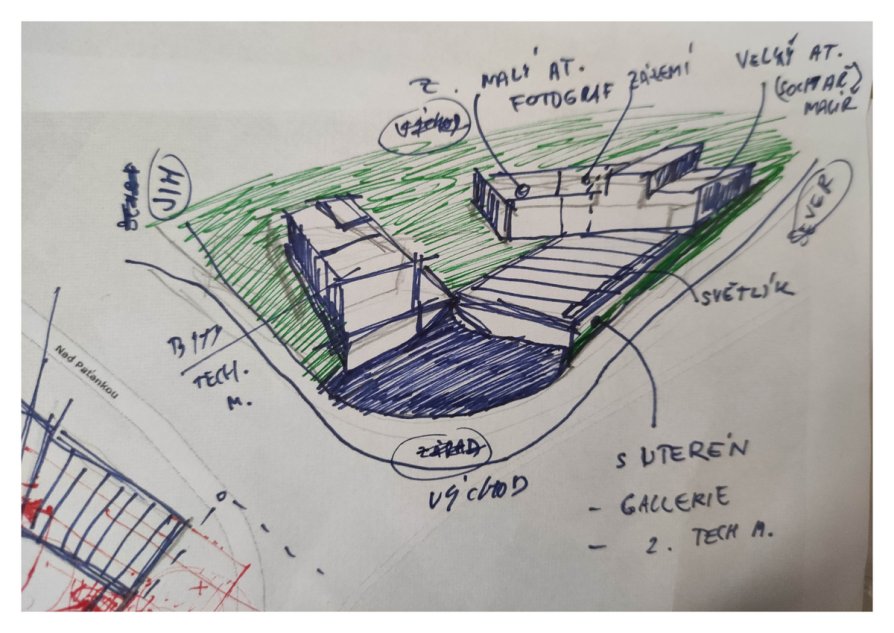 Z.
MALÝ AT.
FOTOGRAF
ZÁZEMÍ
VELKÝ AT.
(SOCHAŘ,
MALÍŘ
VÝCHOD
JIH
SEVER
SVĚTLÍK
BYTY
TECH.
M.
Nad Paťankou
ZÁPAD
VÝCHOD
SUTERÉN
- GALLERIE
- 2. TECH M.